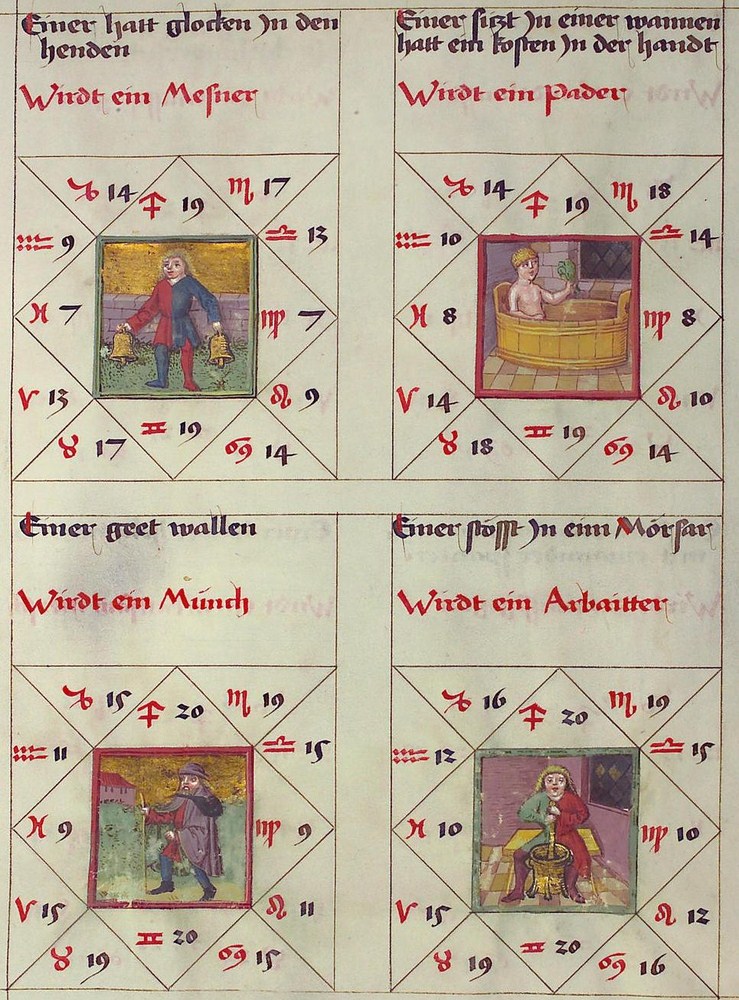 Einer hatt glocken Jn den
henden
Wirdt ein Mesner
♑ 14
♐ 19
♏ 17
♒ 9
♎ 13
♓ 7
♍ 7
♈ 13
♌ 9
♉ 17
♊ 19
♋ 14
Einer sitzt Jn einer wannen
hatt ein kosten Jn der handt
Wirdt ein Pader
♑ 14
♐ 19
♏ 18
♒ 10
♎ 14
♓ 8
♍ 8
♈ 14
♌ 10
♉ 18
♊ 19
♋ 14
Einer geet wallen
Wirdt ein Münch
♑ 15
♐ 20
♏ 19
♒ 11
♎ 15
♓ 9
♍ 9
♈ 15
♌ 11
♉ 19
♊ 20
♋ 15
Einer stösst Jn eim Mörsar
Wirdt ein Arbaitter
♑ 16
♐ 20
♏ 19
♒ 12
♎ 15
♓ 10
♍ 10
♈ 15
♌ 12
♉ 19
♊ 20
♋ 16